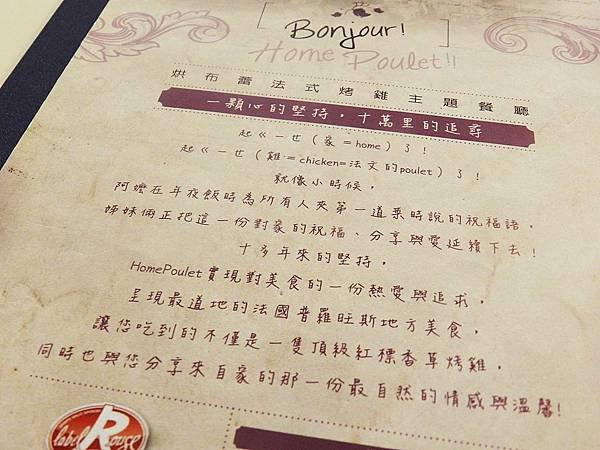 Bonjour!
Home Poulet!!
烘布蕾法式烤雞主題餐廳
一顆心的堅持，十萬里的追尋
起ㄍㄧㄝ（家＝home）了！
起ㄍㄧㄝ（雞＝chicken=法文的poulet）了！
就像小時候，
阿嬤在年夜飯時為所有人夾第一道菜時說的祝福語，
姊妹倆正把這一份對家的祝福、分享與愛延續下去！
十多年來的堅持，
HomePoulet實現對美食的一份熱愛與追求，
呈現最道地的法國普羅旺斯地方美食，
讓您吃到的不僅是一隻頂級紅標香草烤雞，
同時也與您分享來自家的那一份最自然的情感與溫馨!
label Rouge